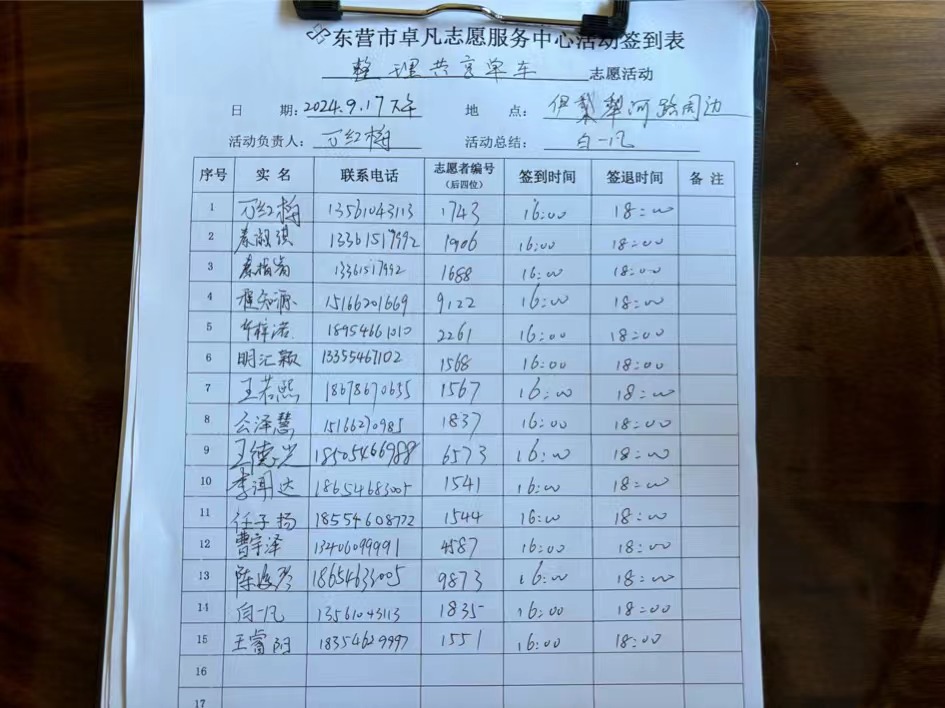 东营市卓凡志愿服务中心活动签到表
整理共享单车 志愿活动
日 期: 2024.9.17下午 地 点: 伊犁河路周边
活动负责人: 万红梅 活动总结: 白一凡
序号 实 名 联系电话 志愿者编号(后四位) 签到时间 签退时间 备 注
1 万红梅 13561043113 1743 16:00 18:00
2 13361517992 1906 16:00 18:00
3 13361517992 1688 16:00 18:00
4 15166201669 9122 16:00 18:00
5 18954661010 2261 16:00 18:00
6 明汇颖 13355467102 1568 16:00 18:00
7 王若熙 18678670655 1567 16:00 18:00
8 公泽慧 15166270985 1837 16:00 18:00
9 王德兴 18505466988 6573 16:00 18:00
10 李闻达 18654683005 1541 16:00 18:00
11 任子扬 18554608772 1544 16:00 18:00
12 曹宇泽 13406099991 4587 16:00 18:00
13 18654633005 9873 16:00 18:00
14 白一凡 13561043113 1835 16:00 18:00
15 王睿阳 18354629997 1551 16:00 18:00
16
17